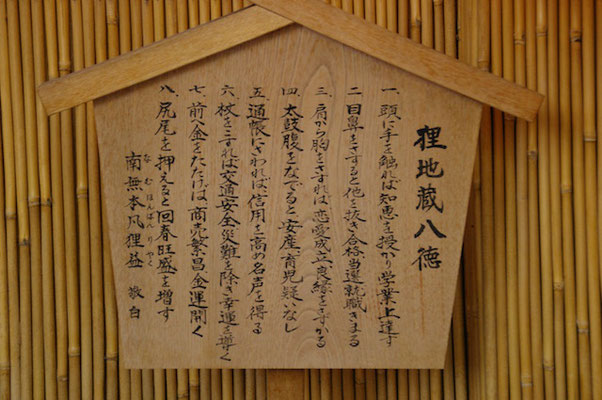 狸地蔵八徳
一、頭に手を触れば知恵を授かり学業上達す
二、目鼻をさすると他を抜き合格当選就職きまる
三、肩から胸をさすれば恋愛成立良縁をさずかる
四、太鼓腹をなでると安産、育児疑いなし
五、通帳にさわれば、信用を高め名声を得る
六、杖をこすれば交通安全災難を除き幸運を導く
七、前八金をたたけば商売繁昌金運開く
八、尻尾を押えると回春旺盛を増す
南無本凡狸益 敬白
なむほんぱんりやく